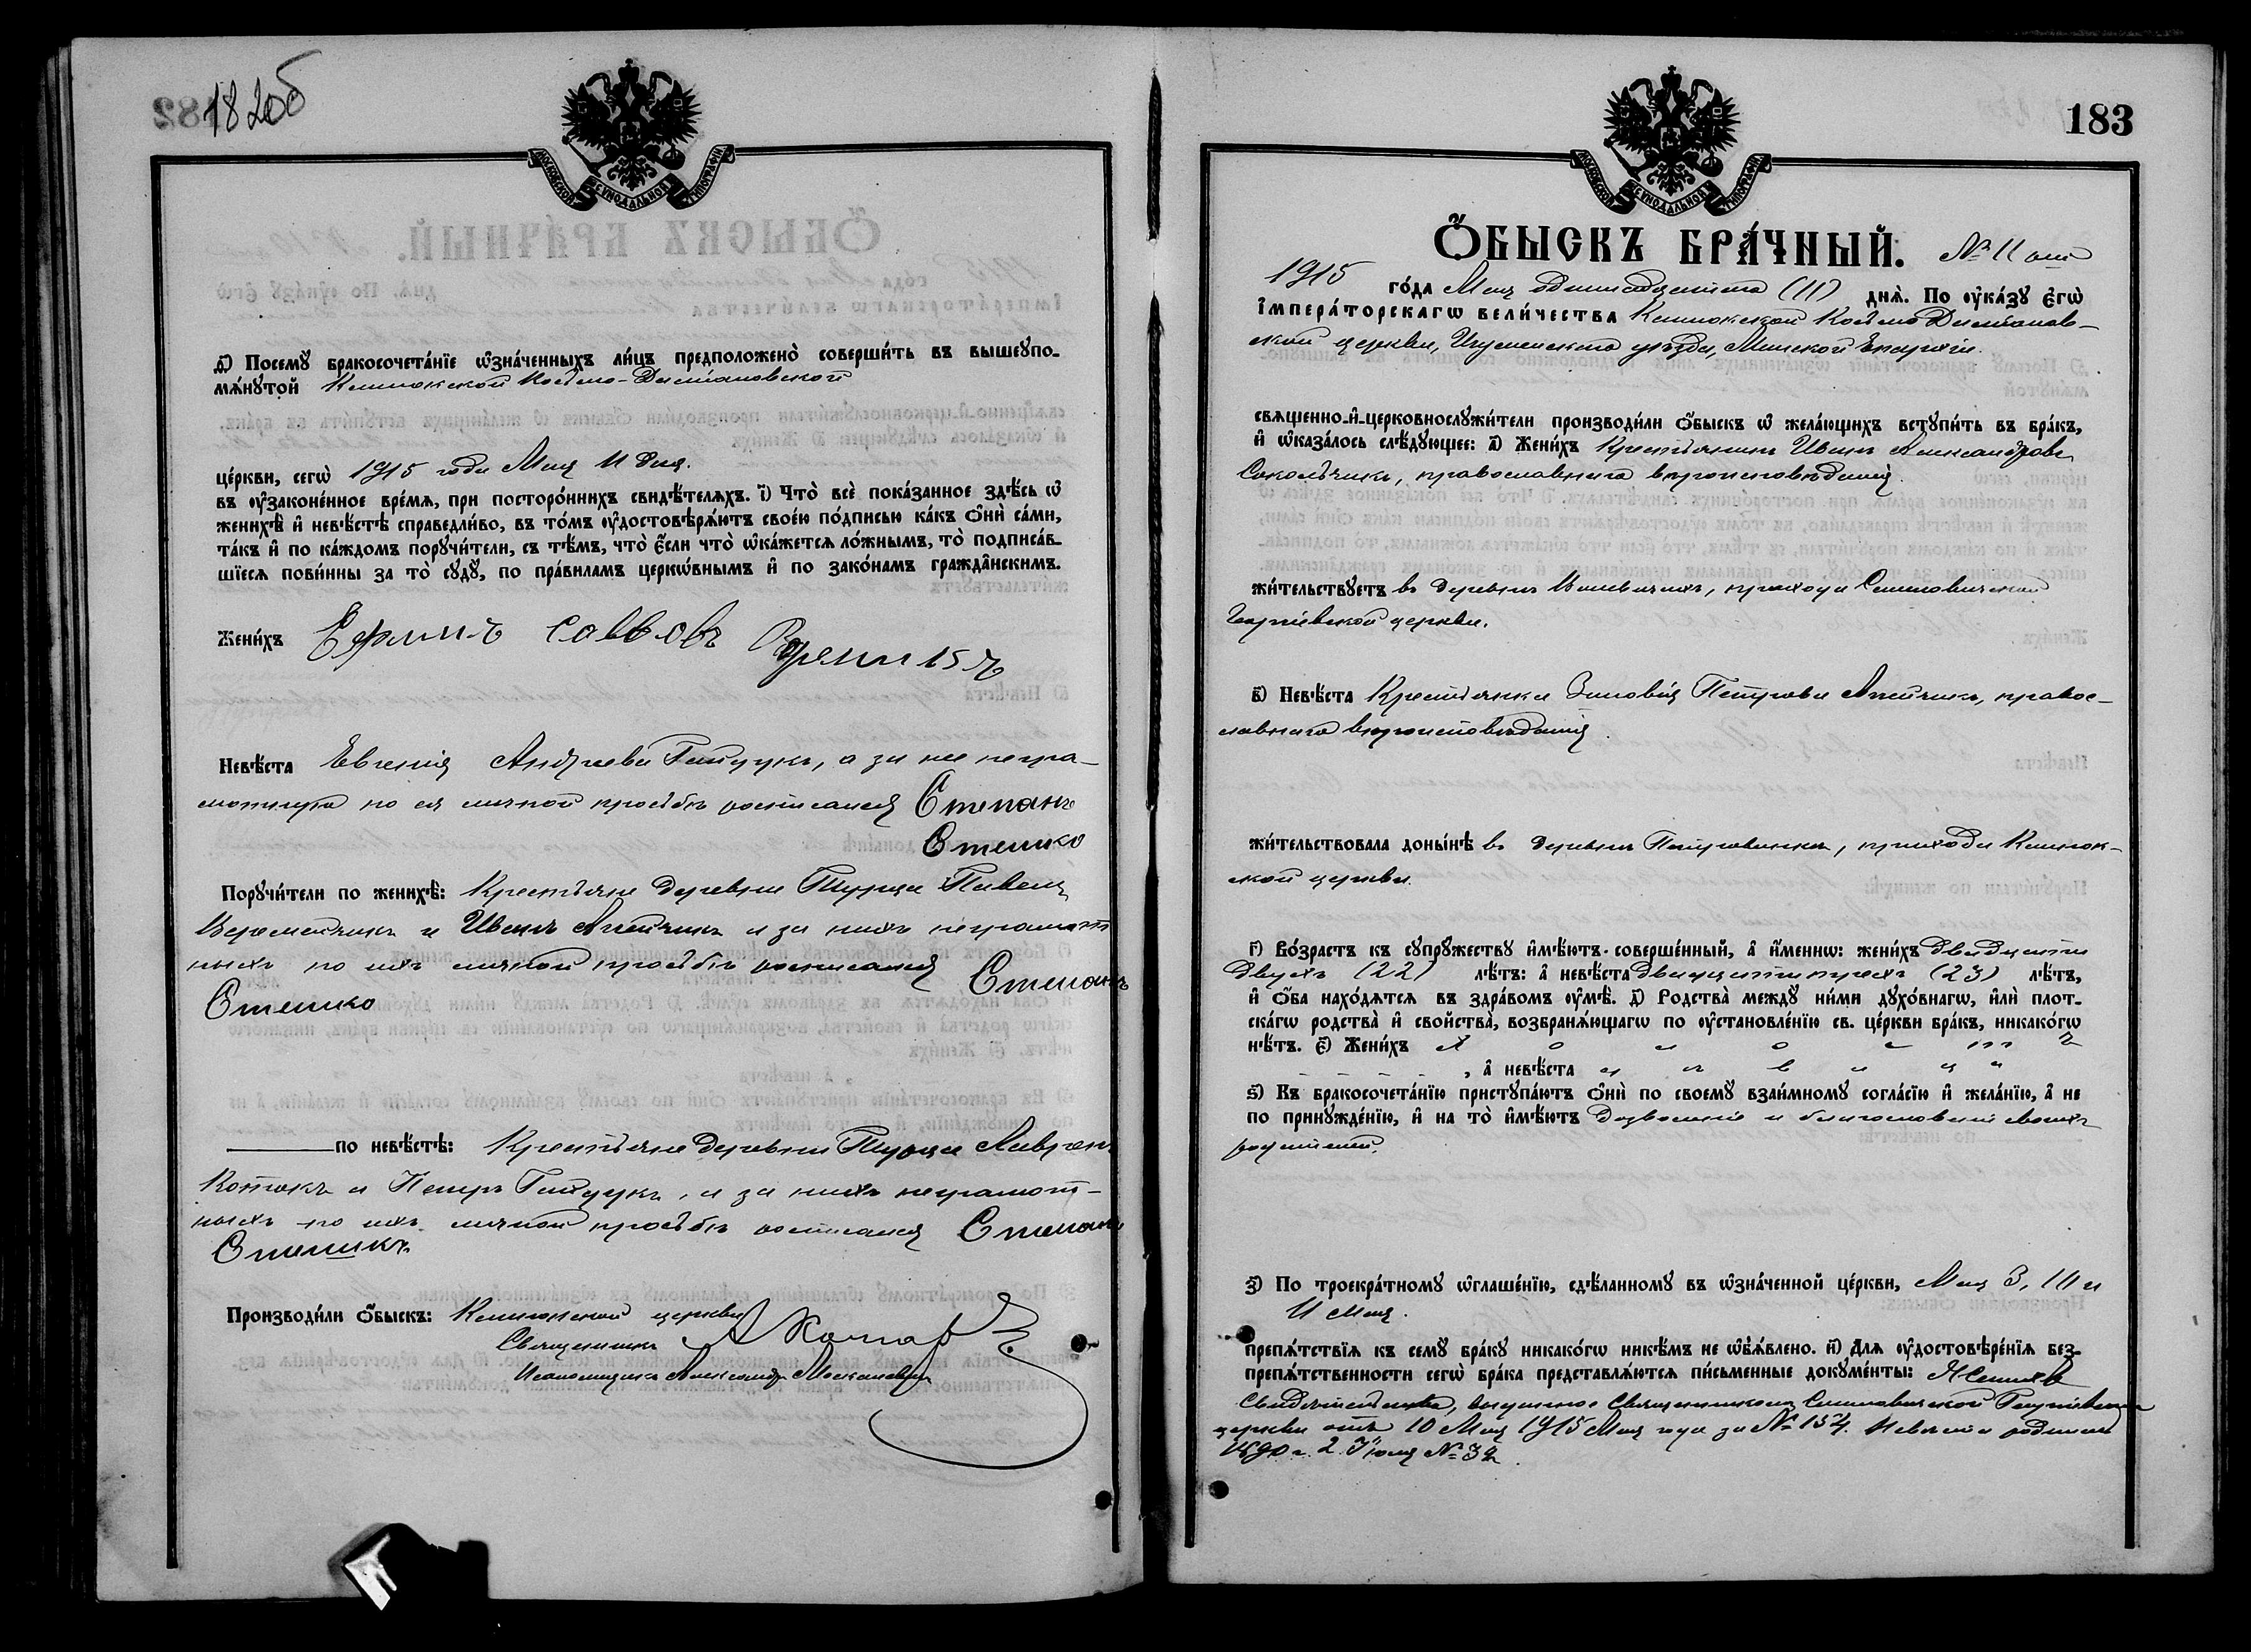 182об
МОСКОВСКОЙ СѴНОДАЛЬНОЙ ТИПОГРАФІИ
д҃і) Посемꙋ бракосочета́нїе ѡ҆зна́ченныхъ ли́цъ предположено̀ соверши́ть въ вышеꙋпо-
мѧ́нꙋтой Клинокской Косьмо-Даміановской
це́ркви, сегѡ̀ 1915 года Мая 11 дня.
въ ᲂу҆зако́не́нное вре́мѧ, при посторо́ннихъ свидѣ́телѧхъ. і҃) Что̀ всѐ пока́занное здѣ́сь ѡ҆
женихѣ̀ и҆ невѣ́стѣ справедли́во, въ то́мъ ᲂу҆достовѣрѧ́ютъ свое́ю по́дписью ка́къ ѻ҆нѝ са́ми,
та́къ и҆ по ка́ждомъ порꙋчи́тели, съ тѣ́мъ, что̀ є҆́сли что̀ ѡ҆ка́жетсѧ ло́жнымъ, то̀ подписа́в-
шїесѧ пови́нны за то̀ сꙋдꙋ̀, по пра́виламъ церко́внымъ и҆ по зако́намъ гражда́нскимъ.
Жени́хъ Ефимъ Саввовъ
Невѣ́ста Евгенія Андреева Гайдукъ, а за нее негра-
мотную по ея личной просьбѣ росписался Степанъ
Стешко
Порꙋчи́тели по женихѣ̀: Крестьяне деревни Турца Павелъ
Веремейчикъ и Иванъ Апейчикъ а за нихъ неграмот
ныхъ по ихъ личной просьбѣ росписался Степанъ
Стешко
по невѣ́стѣ: Крестьяне деревни Турца
и Петръ Гайдукъ, а за нихъ неграмот-
ныхъ по ихъ личной просьбѣ росписался Степанъ
Стешко
Производи́ли ѻ҆́быскъ: Клинокской церкви
Священникъ
Псаломщикъ Александръ
183
МОСКОВСКОЙ СѴНОДАЛЬНОЙ ТИПОГРАФІИ
Ѻ҆БЫСКЪ БРА́ЧНЫЙ. № 11
1915 го́да Мая одиннадцатаго (11) днѧ̀. По ᲂу҆ка́зꙋ є҆гѡ̀
І҆мпера́торскагѡ вели́чества Клинокской Косьмо Даміанов-
ской церкви, Игуменскаго уѣзда, Минской Епархіи.
свѧщенно-и҆-церковнослꙋжи́тели производи́ли ѻ҆́быскъ ѡ҆ жела́ющихъ встꙋпи́ть въ бра́къ,
и҆ ѡ҆каза́лось слѣ́дꙋющее: а҃) Жени́хъ Крестьянинъ Иванъ Александровъ
Сокольчикъ, православнаго вѣроисповѣданія.
жи́тельствꙋетъ въ деревнѣ прихода
Георгіевской церкви.
в҃) Невѣ́ста Крестьянка Зиновія Петрова Апейчикъ, право-
славнаго вѣроисповѣданія.
жи́тельствовала доны́нѣ въ деревнѣ прихода Клинок-
ской церкви.
г҃) Во́зрастъ къ сꙋпрꙋ́жествꙋ и҆мѣ́ютъ соверше́нный, а҆ и҆́меннѡ: жени́хъ двадцати
двухъ (22) лѣ́тъ: а҆ невѣ́ста двадцати трехъ (23) лѣ́тъ,
и҆ ѻ҆́ба нахо́дѧтсѧ въ здра́вомъ ᲂу҆мѣ̀. д҃) Родства̀ междꙋ ни́ми дꙋхо́внагѡ, и҆лѝ плот-
ска́гѡ родства̀ и҆ сво́йства̀, возбранѧ́ющагѡ по ᲂу҆становле́нїю св. це́ркви бра́къ, никако́гѡ
нѣ́тъ. є҃) Жени́хъ х о л о с т ъ
, а҆ невѣ́ста д ѣ в и ц а
ѕ҃) Къ бракосочета́нїю пристꙋпа́ютъ ѻ҆нѝ по своемꙋ̀ взаи́мномꙋ согла́сїю и҆ жела́нїю, а҆ не
по принꙋжде́нїю, и҆ на то̀ и҆мѣ́ютъ дозволеніе и благословеніе своихъ
родителей.
з҃) По троекра́тномꙋ ѡ҆глаше́нїю, сдѣ́ланномꙋ въ ѡ҆зна́ченной це́ркви, Мая 3, 10 и
11 Мая.
препѧ́тствїѧ къ семꙋ̀ бра́кꙋ никако́гѡ никѣ́мъ не ѡ҆б̾ѧ́влено. и҃) Длѧ ᲂу҆достовѣре́нїѧ без-
препѧ́тственности сегѡ̀ бра́ка представлѧ́ютсѧ пи́сьменные докꙋме́нты: Жениха
Свидѣтельство, выданное Священникомъ Георгіевской
церкви отъ 10 Мая 1915 Мая года за № 154. Невѣста родилась
2 Іюня №